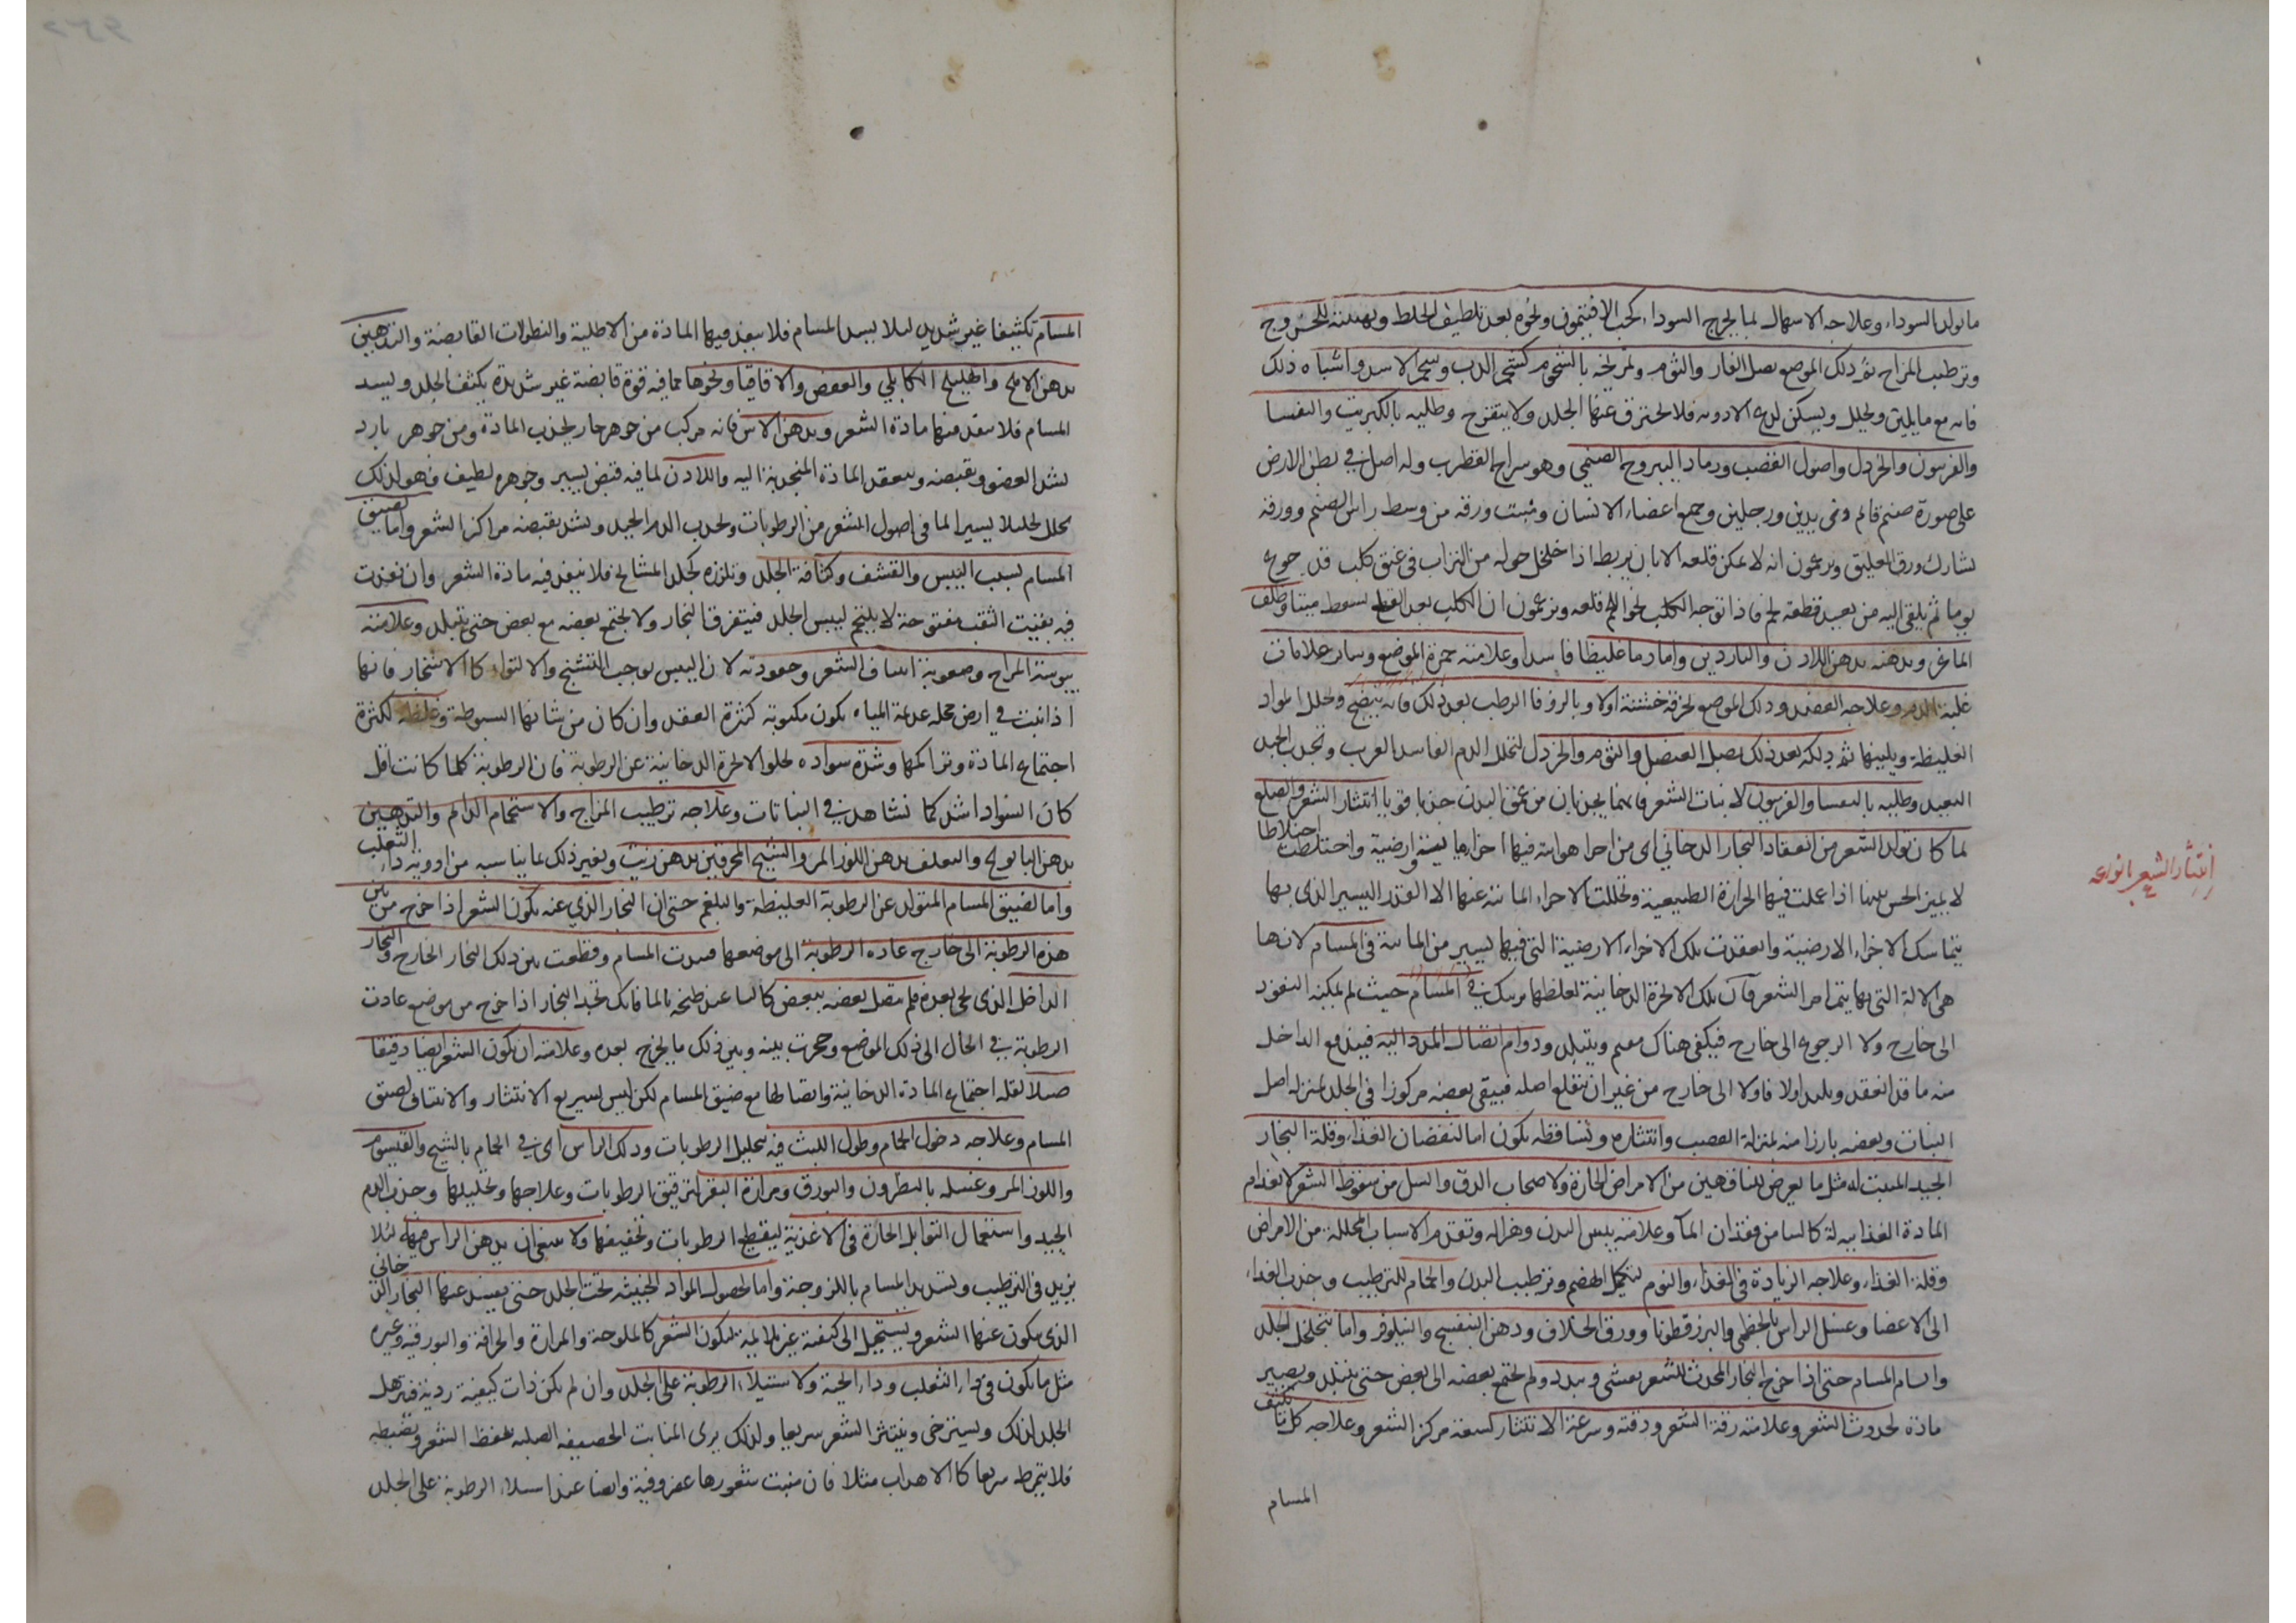 ما تولد السوداء وعلاجه الاسهال لما يخرج السوداء كحب الافتيمون ونحوه بعد تلطيف الخلط وتهيئته للخروج
وترطيب المزاج ثم دلك الموضع ببصل الفار والثوم وتمريخه بالشحوم كشحم الدب وشحم الاسد واشباه ذلك
فانه مع ما يلين ويحلل ويسكن لدع الادوية فلا يحترق عنها الجلد ولا يتقرح وطليه بالكبريت والتفسا
والفربيون والخردل واصول القصب ورماد اليبروح الصنمي وهو سراج القطرب وله اصل في بطن الارض
على صورة صنم قائم ذى يدين ورجلين وجميع اعضاء الانسان ومنبت ورقه من وسط راس الصنم وورقه
يشارك ورق العليق ويزعمون انه لا يمكن قلعه الا بان يربط اذا خلخل حوله من التراب في عنق كلب قد جوع
يوما ثم يلقى اليه من بعيد قطعة لحم فاذا توجه الكلب نحو اللحم قلعه ويزعمون ان الكلب بعد القلع يسقط ميتا وظلف
الماعز ويدهنه بدهن اللادن والناردين واما دما غليظا فاسدا وعلامته حمرة الموضع وساير علامات
غلبة الدم وعلاجه الفصد ودلك الموضع بخرقة خشنة اولا وبالزوفا الرطب بعد ذلك فانه ينضج ويحلل المواد
الغليظة ويلينها ثم دلكه بعد ذلك ببصل العنصل والثوم والخردل لتحلل الدم الفاسد القريب وتجذب الجيد
البعيد وطليه بالتفسا والفربيون لانبات الشعر فانهما يجذبان من عمق البدن جذبا قويا انتثار الشعر والصلع
لما كان تولد الشعر من انعقاد البخار الدخاني اى من اجزا هوائية فيها اجزاء يابسة وارضية واختلطت اختلاطا
لا يميز الحس بينها اذا عملت فيها الحرارة الطبيعية وتحللت الاجزاء المائية عنها الا القدر اليسير الذى بها
يتماسك الاجزاء الارضية وانعقدت تلك الاجزاء الارضية التى فيها يسير من المائية في المسام لانها
هى الالة التى بها يتم امر الشعر فان تلك الابخرة الدخانية لغلظها يرتبك في المسام حيث لم يمكنه النفوذ
الى خارج ولا الرجوع الى خارج فيكفى هناك معه ويتبلد ودوام اتصال المدد اليه فيندفع الداخل
منه ما قد انعقد وتلبد اولا فاولا الى خارج من غير ان ينقلع اصله فيبقى بعضه مركوزا في الجلد بمنزلة اصل
النبات وبعضه بارزا منه بمنزلة القصب وانتثاره وتساقطه يكون اما لنقصان الغذاء وقلة البخار
الجيد المنبت له مثل ما يعرض للناقهين من الامراض الحادة ولاصحاب الدق والسل من سقوط الشعر لانعدام
المادة الغذائية له كالنبات من فقدان الماء وعلامته يبس البدن وهزاله وتقدم الاسباب المحللة من الامراض
وقلة الغذاء وعلاجه الزيادة في الغذاء والنوم لتكمل الهضم وترطيب البدن والحمام للترطيب وجذب الغذاء
الى الاعضا وغسل الراس بالخطمى والبزرقطونا وورق الخلاف ودهن البنفسج والنيلوفر واما بتخلخل الجلد
واتساع المسام حتى اذا خرج البخار المحدث للشعر يفشى وتبدد ولم يجتمع بعضه الى بعض حتى يتبلد ويصير
مادة لحدوث الشعر وعلامته رقة الشعر ودقته وسرعة الانتثار لسعة مركز الشعر وعلاجه كل ما تكثف
المسام
انتثار الشعر انواعه
المسام تكثيفا غير شديد لئلا يسد المسام فلا ينفذ فيها المادة من الاطلية والنطولات القابضة والتدهين
بدهن الاملج والهليلج الكابلي والعفص والاقاقيا ونحوها مما فيه قوة قابضة غير شديدة يكثف الجلد ويسد
المسام فلا ينفذ منها مادة الشعر وبدهن الاس فانه مركب من جوهر حار يجذب المادة ومن جوهر بارد
يشد العضو وبقبضه وينعقد المادة المنجذبة اليه واللادن لما فيه قبض يسير وجوهره لطيف فهو لذلك
يحلل تحليلا يسيرا لما في اصول الشعر من الرطوبات ويجذب الدم الجيد ويشد بقبضه مراكز الشعر واما لضيق
المسام بسبب اليبس والقشف وكثافة الجلد وتلززه كجلد المشايخ فلا ينفذ فيه مادة الشعر وان نفذت
فيه بقيت الثقب مفتوحة لا يلتحم ليبس الجلد فيتفرق البخار ولا يجتمع بعضه مع بعض حتى يتبلد وعلامته
يبوسة المزاج وصعوبة انتتاف الشعر وجعودته لان اليبس يوجب التشنج والالتواء كالاشجار فانها
اذا نبتت في ارض محله عديمة المياه يكون ملتوية كثيرة العقد وان كان من شانها السبوطة وغلظه لكثرة
اجتماع المادة وتراكمها وشدة سواده لخلو الابخرة الدخانية عن الرطوبة فان الرطوبة كلما كانت اقل
كان السواد اشد كما نشاهد في النباتات وعلاجه ترطيب المزاج والاستحمام الدائم والتدهين
بدهن البابونج والتعلف بدهن اللوز المر والشيح المحرقين بدهن زيت وبغير ذلك مما يناسبه من ادوية داء الثعلب
واما لضيق المسام المتولد عن الرطوبة الغليظة والبلغم حتى ان البخار الذي عنه يكون الشعر اذا خرج من بين
هذه الرطوبة الى خارج عادت الرطوبة الى موضعها فسدت المسام وقطعت بين ذلك البخار الخارج والبخار
الداخل الذى يجئ بعده فلم يتصل بعضه ببعض كالنشا عند طبخه بالما فانك تجد البخار اذا خرج من موضع عادت
الرطوبة في الحال الى ذلك الموضع وحجزت بينه وبين ذلك ما يخرج بعده وعلامته ان يكون الشعر ايضا دقيقا
ضيلا لقلة اجتماع المادة الدخانية واتصالها مع ضيق المسام لكن ليس بسريع الانتثار والانتتاف لضيق
المسام وعلاجه دخول الحمام وطول اللبث فيه بتحليل الرطوبات ودلك الراس اى في الحمام بالشيح والقيسوم
واللوز المر وغسله بالنطرون والبورق ومرارة البقر لترقيق الرطوبات وعلاجها وتحليلها وجذب الدم
الجيد واستعمال التوابل الحارة في الاغذية ليقطع الرطوبات وتجفيفها ولا ينبغى ان يدهن الراس فيها لئلا
يزيد في الترطيب وتسديد المسام باللزوجة واما لحصول المواد الخبيثة تحت الجلد حتى يفسد عنها البخار الدخاني
الذى يكون عنها الشعر ويستحيل الى كيفية غير ملايمة لتكون الشعر كالملوحة والمرارة والحرافة والبورقية وغيره
مثل ما يكون في داء الثعلب وداء الحية ولاستيلاء الرطوبة على الجلد وان لم يكن ذات كيفية ردية فيترهل
الجلد لذلك ويسترخى وينتثر الشعر سريعا ولذلك يرى المنابت الحصيفة الصلبة تحفظ الشعر وتضبطه
فلا يتمرط سريعا كالاهداب مثلا فان منبت شعورها غضروفية وايضا عند استيلاء الرطوبة على الجلد